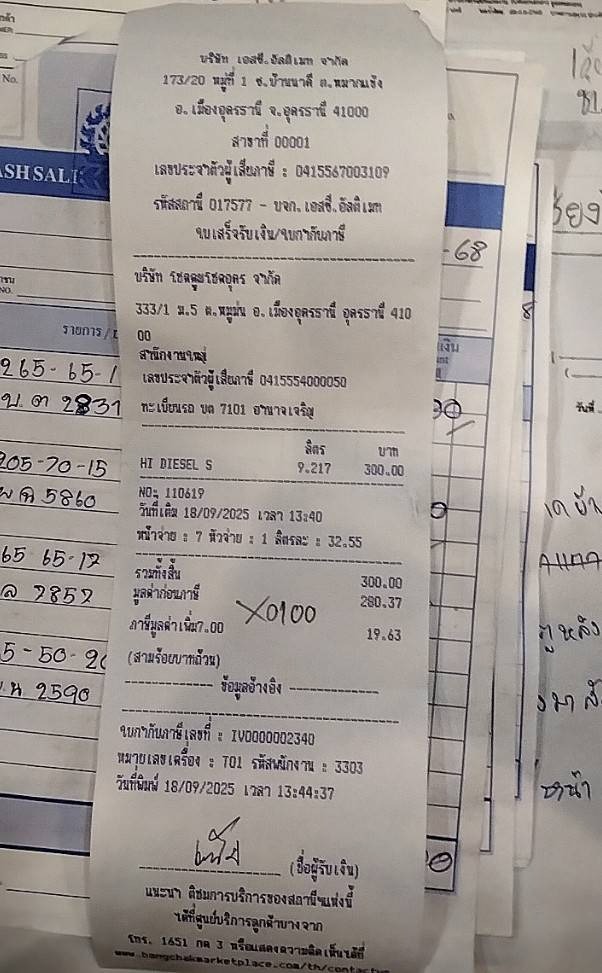 บริษัท เอสซี.อัลติเมท จำกัด
173/20 หมู่ที่ 1 ซ.บ้านนาดี ต.หมากแข้ง
อ.เมืองอุดรธานี จ.อุดรธานี 41000
สาขาที่ 00001
เลขประจำตัวผู้เสียภาษี : 0415567003109
รหัสสถานี 017577 - บจก.เอสซี.อัลติเมท
ใบเสร็จรับเงิน/ใบกำกับภาษี
บริษัท โชคอุดร จำกัด
333/1 ม.5 ต.หมูม่น อ.เมืองอุดรธานี อุดรธานี 410
00
สำนักงานใหญ่
เลขประจำตัวผู้เสียภาษี 0415554000050
ทะเบียนรถ บต 7101 อำนาจเจริญ
ลิตร บาท
HI DIESEL S 9.217 300.00
NO: 110619
วันที่เติม 18/09/2025 เวลา 13:40
หน้าจ่าย : 7 หัวจ่าย : 1 ลิตรละ : 32.55
รวมทั้งสิ้น 300.00
มูลค่าก่อนภาษี 280.37
X0100
ภาษีมูลค่าเพิ่ม7.00 19.63
(สามร้อยบาทถ้วน)
ข้อมูลอ้างอิง
ใบกำกับภาษีเลขที่ : IV0000002340
หมายเลขเครื่อง : T01 รหัสพนักงาน : 3303
วันที่พิมพ์ 18/09/2025 เวลา 13:44:37
(ชื่อผู้รับเงิน)
แนะนำ ติชมการบริการของสถานีฯแห่งนี้
ได้ที่ศูนย์บริการลูกค้าบางจาก
โทร. 1651 กด 3 หรือแสดงความคิดเห็นได้ที่
www.bangchakmarketplace.com/th/contactus
No.
ASH SALE
รายการ /
265-65-1
บ.ต 2831
205-70-15
5860
65 65-17
2852
5-50-20
2590
-68
เงิน
วันที่
หน้า